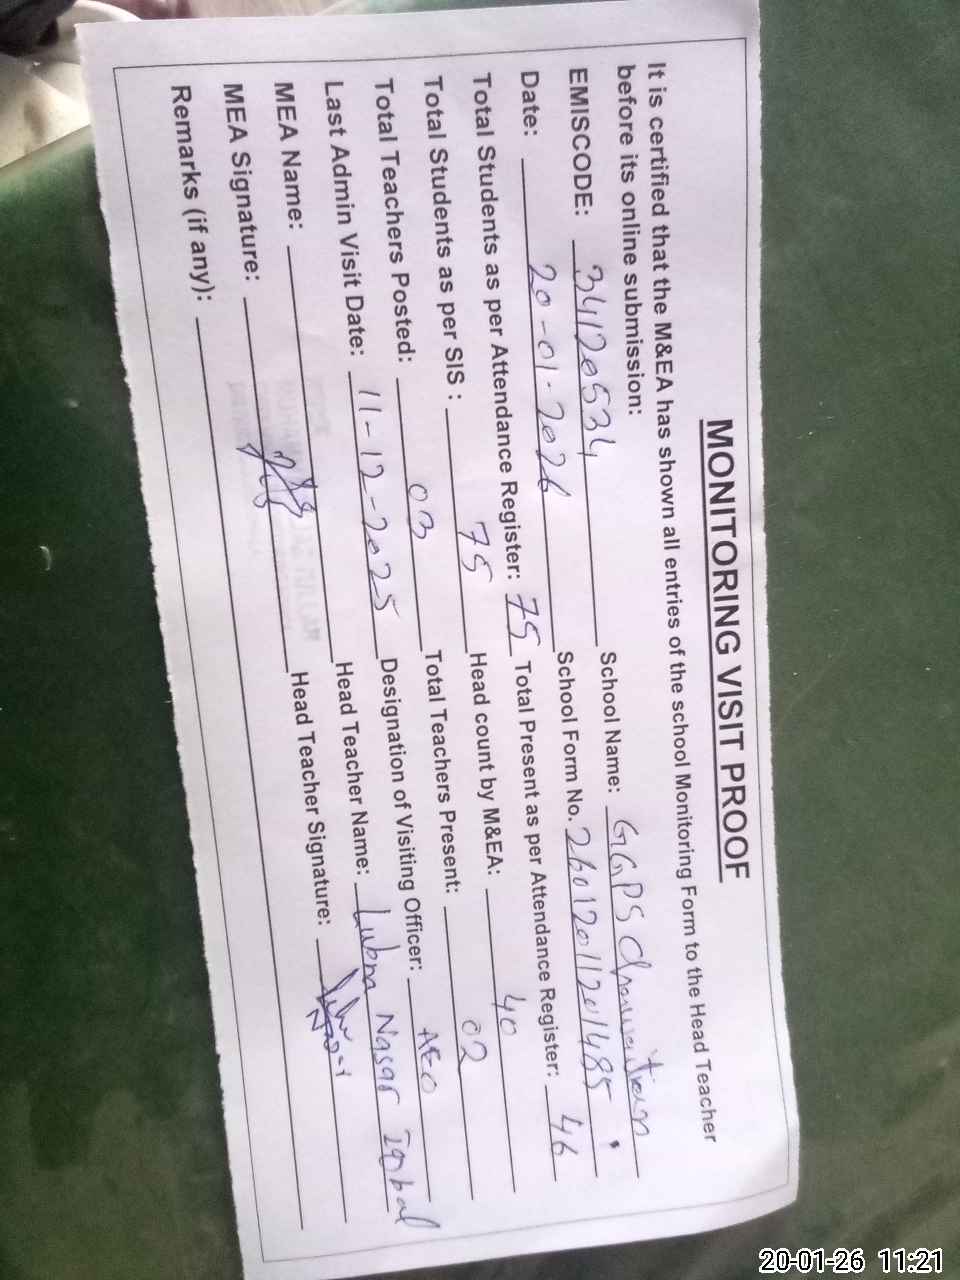 MONITORING VISIT PROOF
It is certified that the M&EA has shown all entries of the school Monitoring Form to the Head Teacher
before its online submission:
EMISCODE: 34120534 School Name: GGPS
Date: 20-01-2026 School Form No. 26012011201485
Total Students as per Attendance Register: 75 Total Present as per Attendance Register: 46
Total Students as per SIS : 75 Head count by M&EA: 40
Total Teachers Posted: 03 Total Teachers Present: 02
Last Admin Visit Date: 11-12-2025 Designation of Visiting Officer: AEO
MEA Name: Head Teacher Name: Lubna Nasar Iqbal
MEA Signature: Head Teacher Signature:
Remarks (if any):
20-01-26 11:21